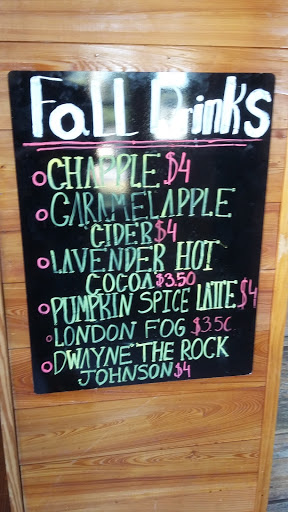 Fall Drinks
CHAPPLE $4
CARAMEL APPLE
CIDER $4
LAVENDER HOT
COCOA $3.50
PUMPKIN SPICE LATTE $4
LONDON FOG $3.50
DWAYNE "THE ROCK
JOHNSON $4